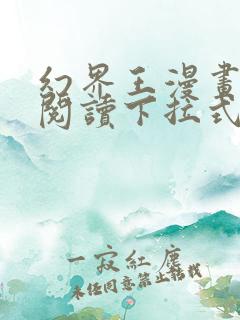 幻界王漫畫
閱讀下拉式
一寂紅塵
未經同意禁止轉載